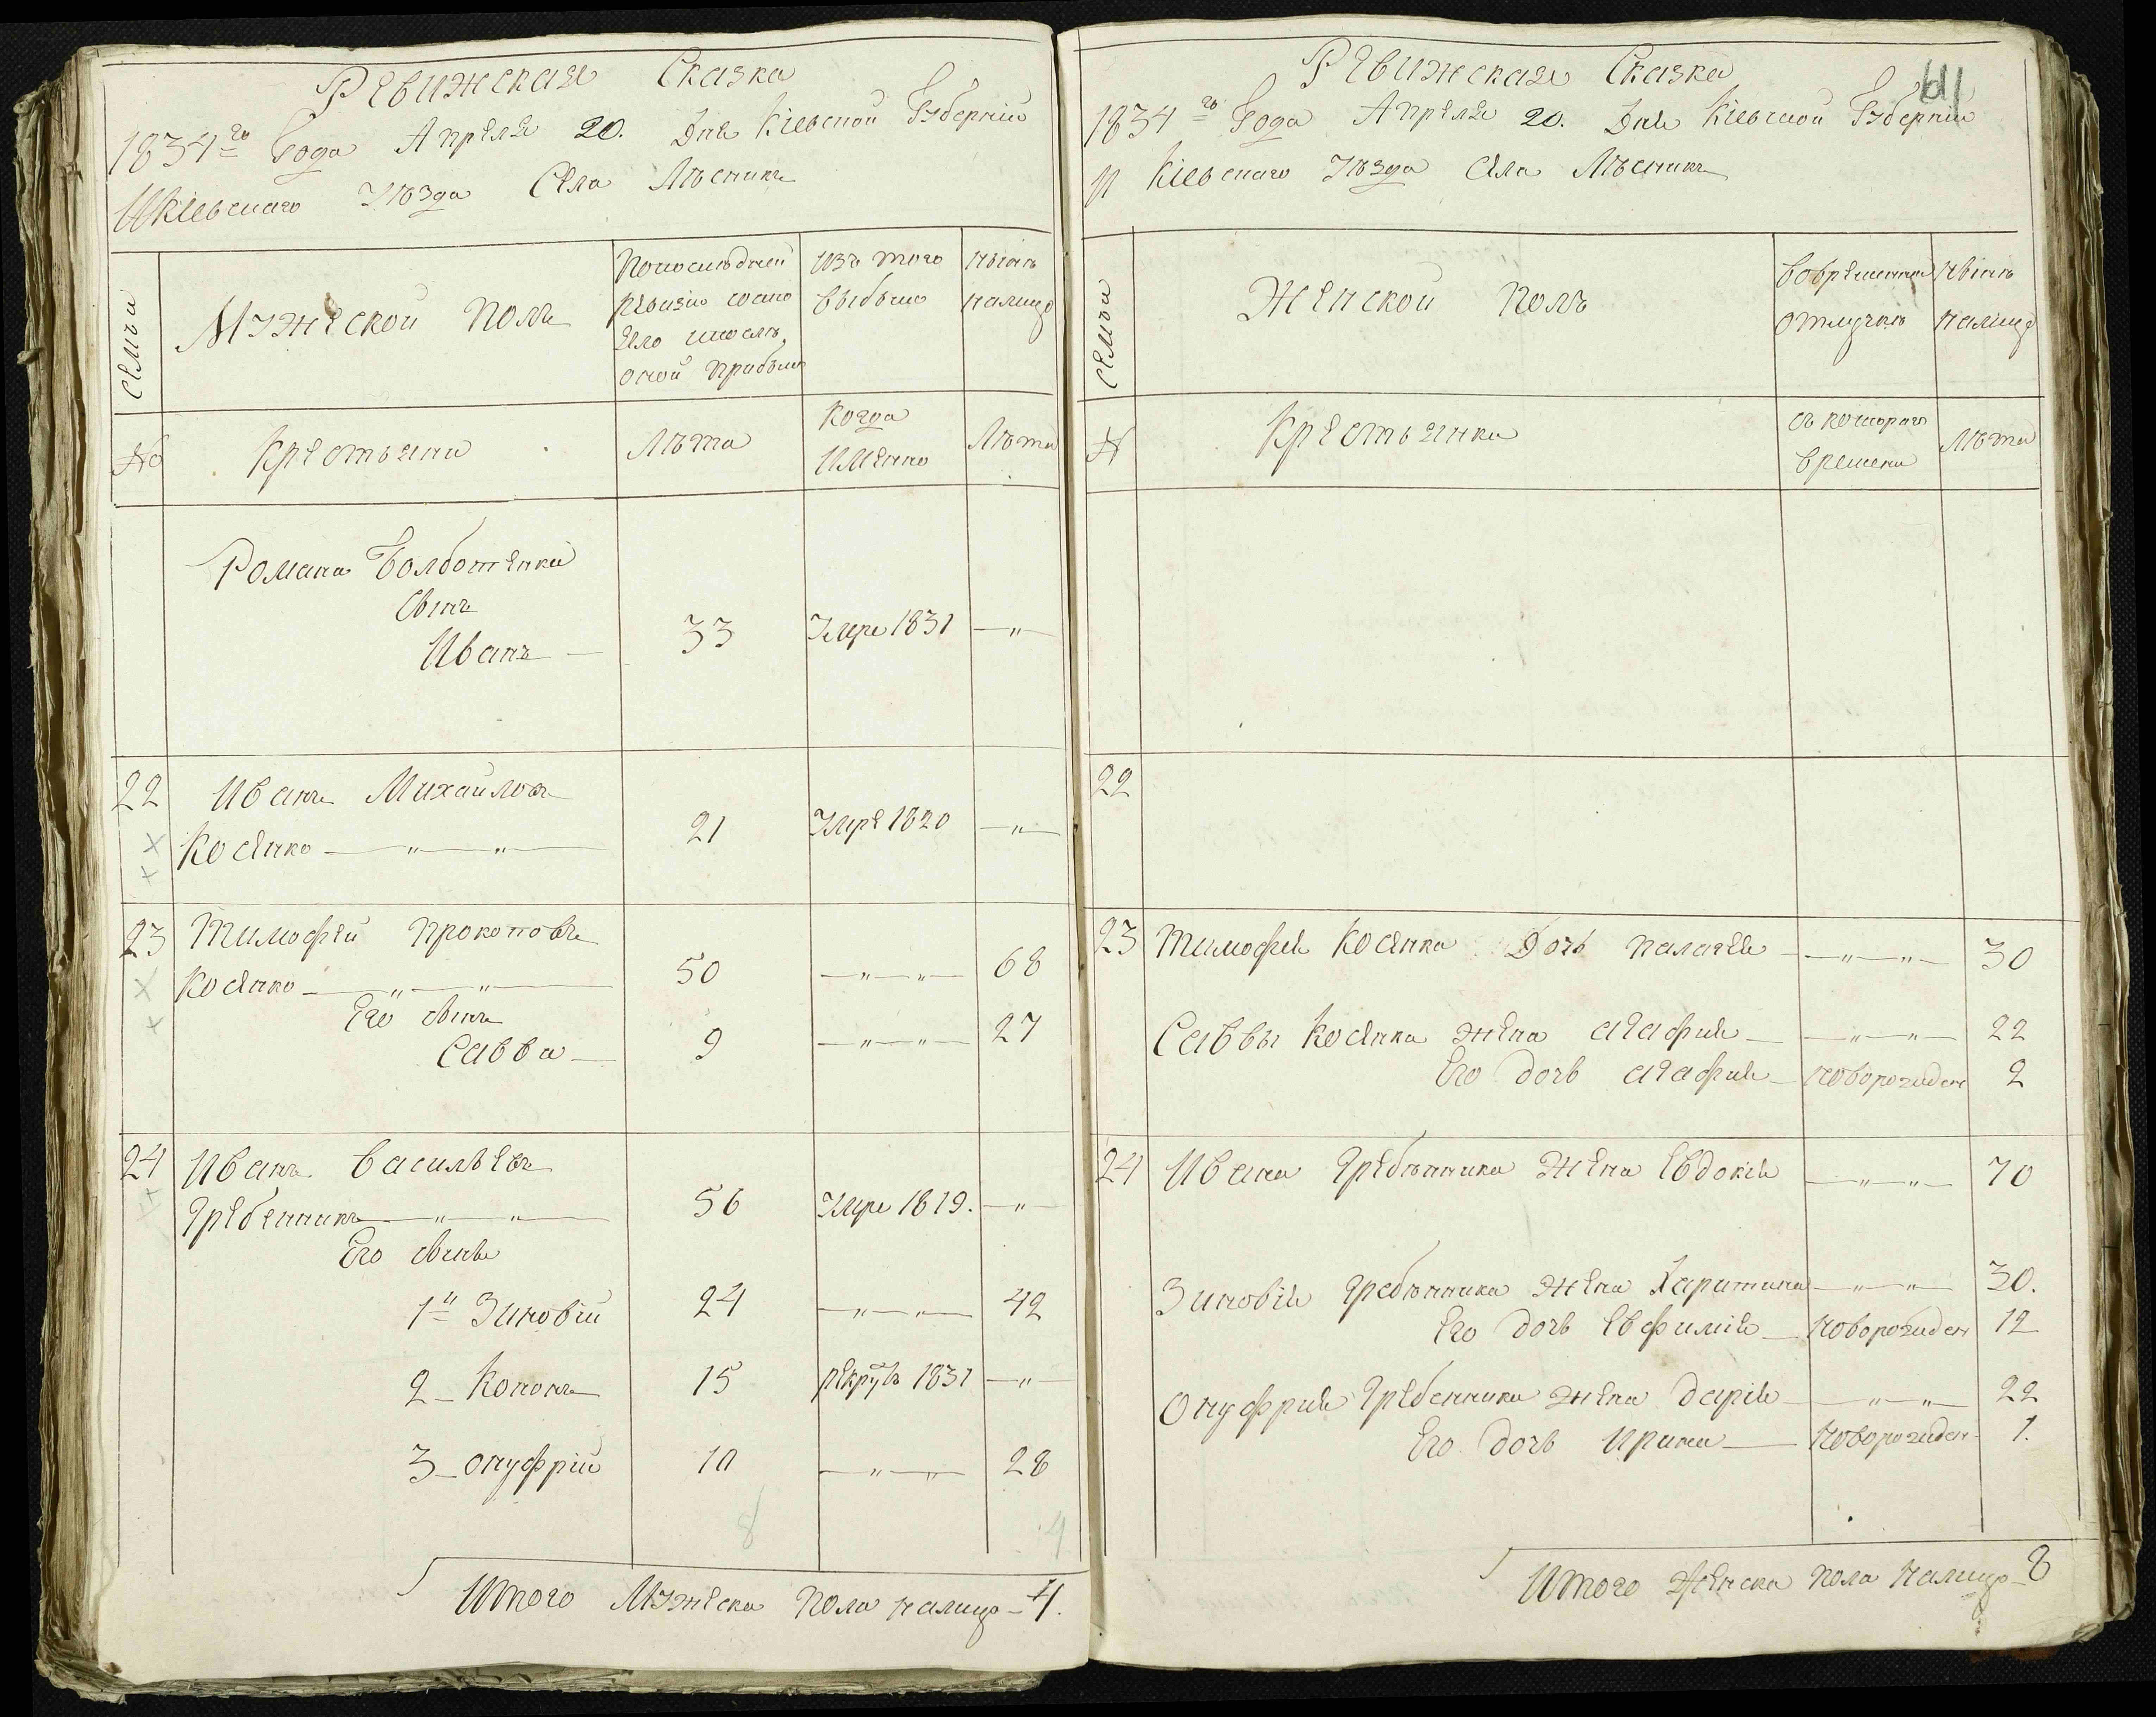 Ревижская Сказка
1834го Года Апреля 20. Дня Кіевской Губерніи
И Кіевскаго Уѣзда Села Лѣсникъ
Семьи
Мужеской Полъ
Попослѣдней
ревизіи состо
яло ипослѣ
оной прибыло
Изъ того
выбыло
Нынѣ
налицо
№
Крестьяни
Лѣта
Когда
Имянно
Лѣта
Романа Болботенка
Сынъ
Иванъ —
33
Умре 1831
—„—
22
Иванъ Михайловъ
Косянко —„—„—
21
Умре 1820
—„—
23
Тимофей Прокоповъ
Косянко —„—„—
50
—„—„—
68
Его сынъ
Савва —
9
—„—„—
27
24
Иванъ Васильевъ
Гребенникъ —„—„—
56
Умре 1819.
—„—
Его сыны
1й Зиновій
24
—„—„—
42
2 — Кононъ
15
рекрутъ 1831
—„—
3 — Онуфрій
10
—„—„—
28
8
4
Итого Мужеска пола налицо — 4.
61
Ревижская Сказка
1834го Года Апреля 20. Дня Кіевской Губерніи
И Кіевскаго Уѣзда Села Лѣсникъ
Семьи
Женской полъ
Вовременной
отлучкѣ
Нынѣ
налицо
№
Крестьянки
съ котораго
времени
Лѣта
22
23
Тимофея Косянка Дочь Палагея —„—„—
30
Саввы Косянка жена Агафия —„—„—
22
Его дочь Агафия — новорожден
2
24
Ивана Гребѣнника жена Евдокия —„—„—
70
Зиновія Гребѣнника жена Харитина —„—„—
30.
Его дочь Евфимія — новорожден
12
Онуфрия Гребенника жена Дарія —„—„—
22
Его дочь Ирина — Новорожден
1.
Итого Женска пола налицо — 8